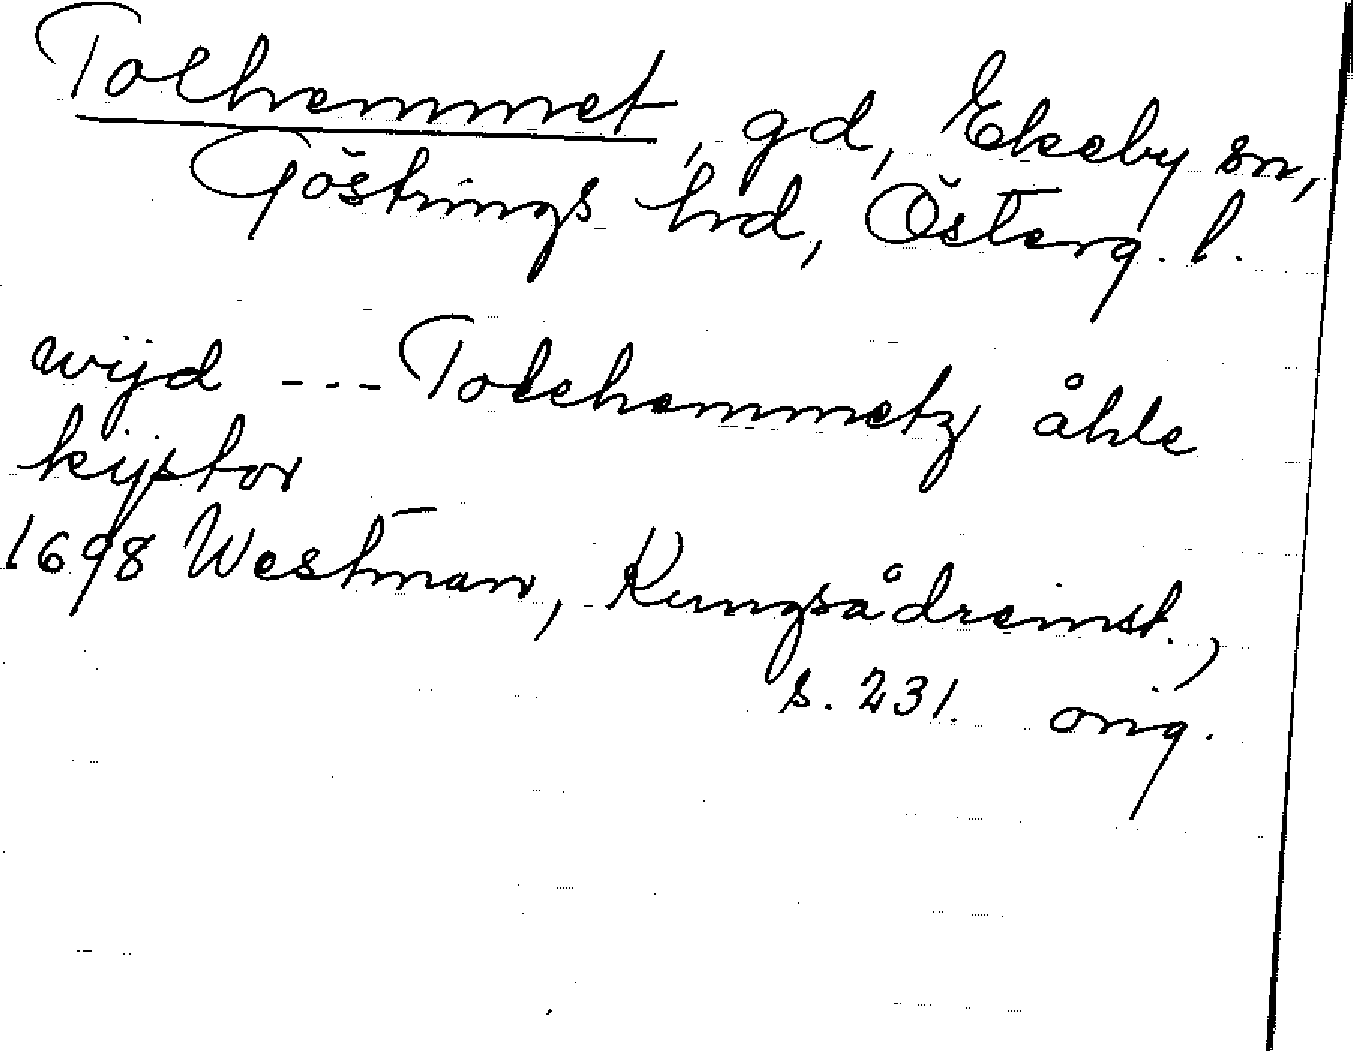 Tolhemmet, gd, Ekeby sn,
Göstrings hd, Österg. l.
wijd --- Tolehemmetz åhle
kijstor
1698 Westman, Kungsådreinst.,
s. 231. orig.